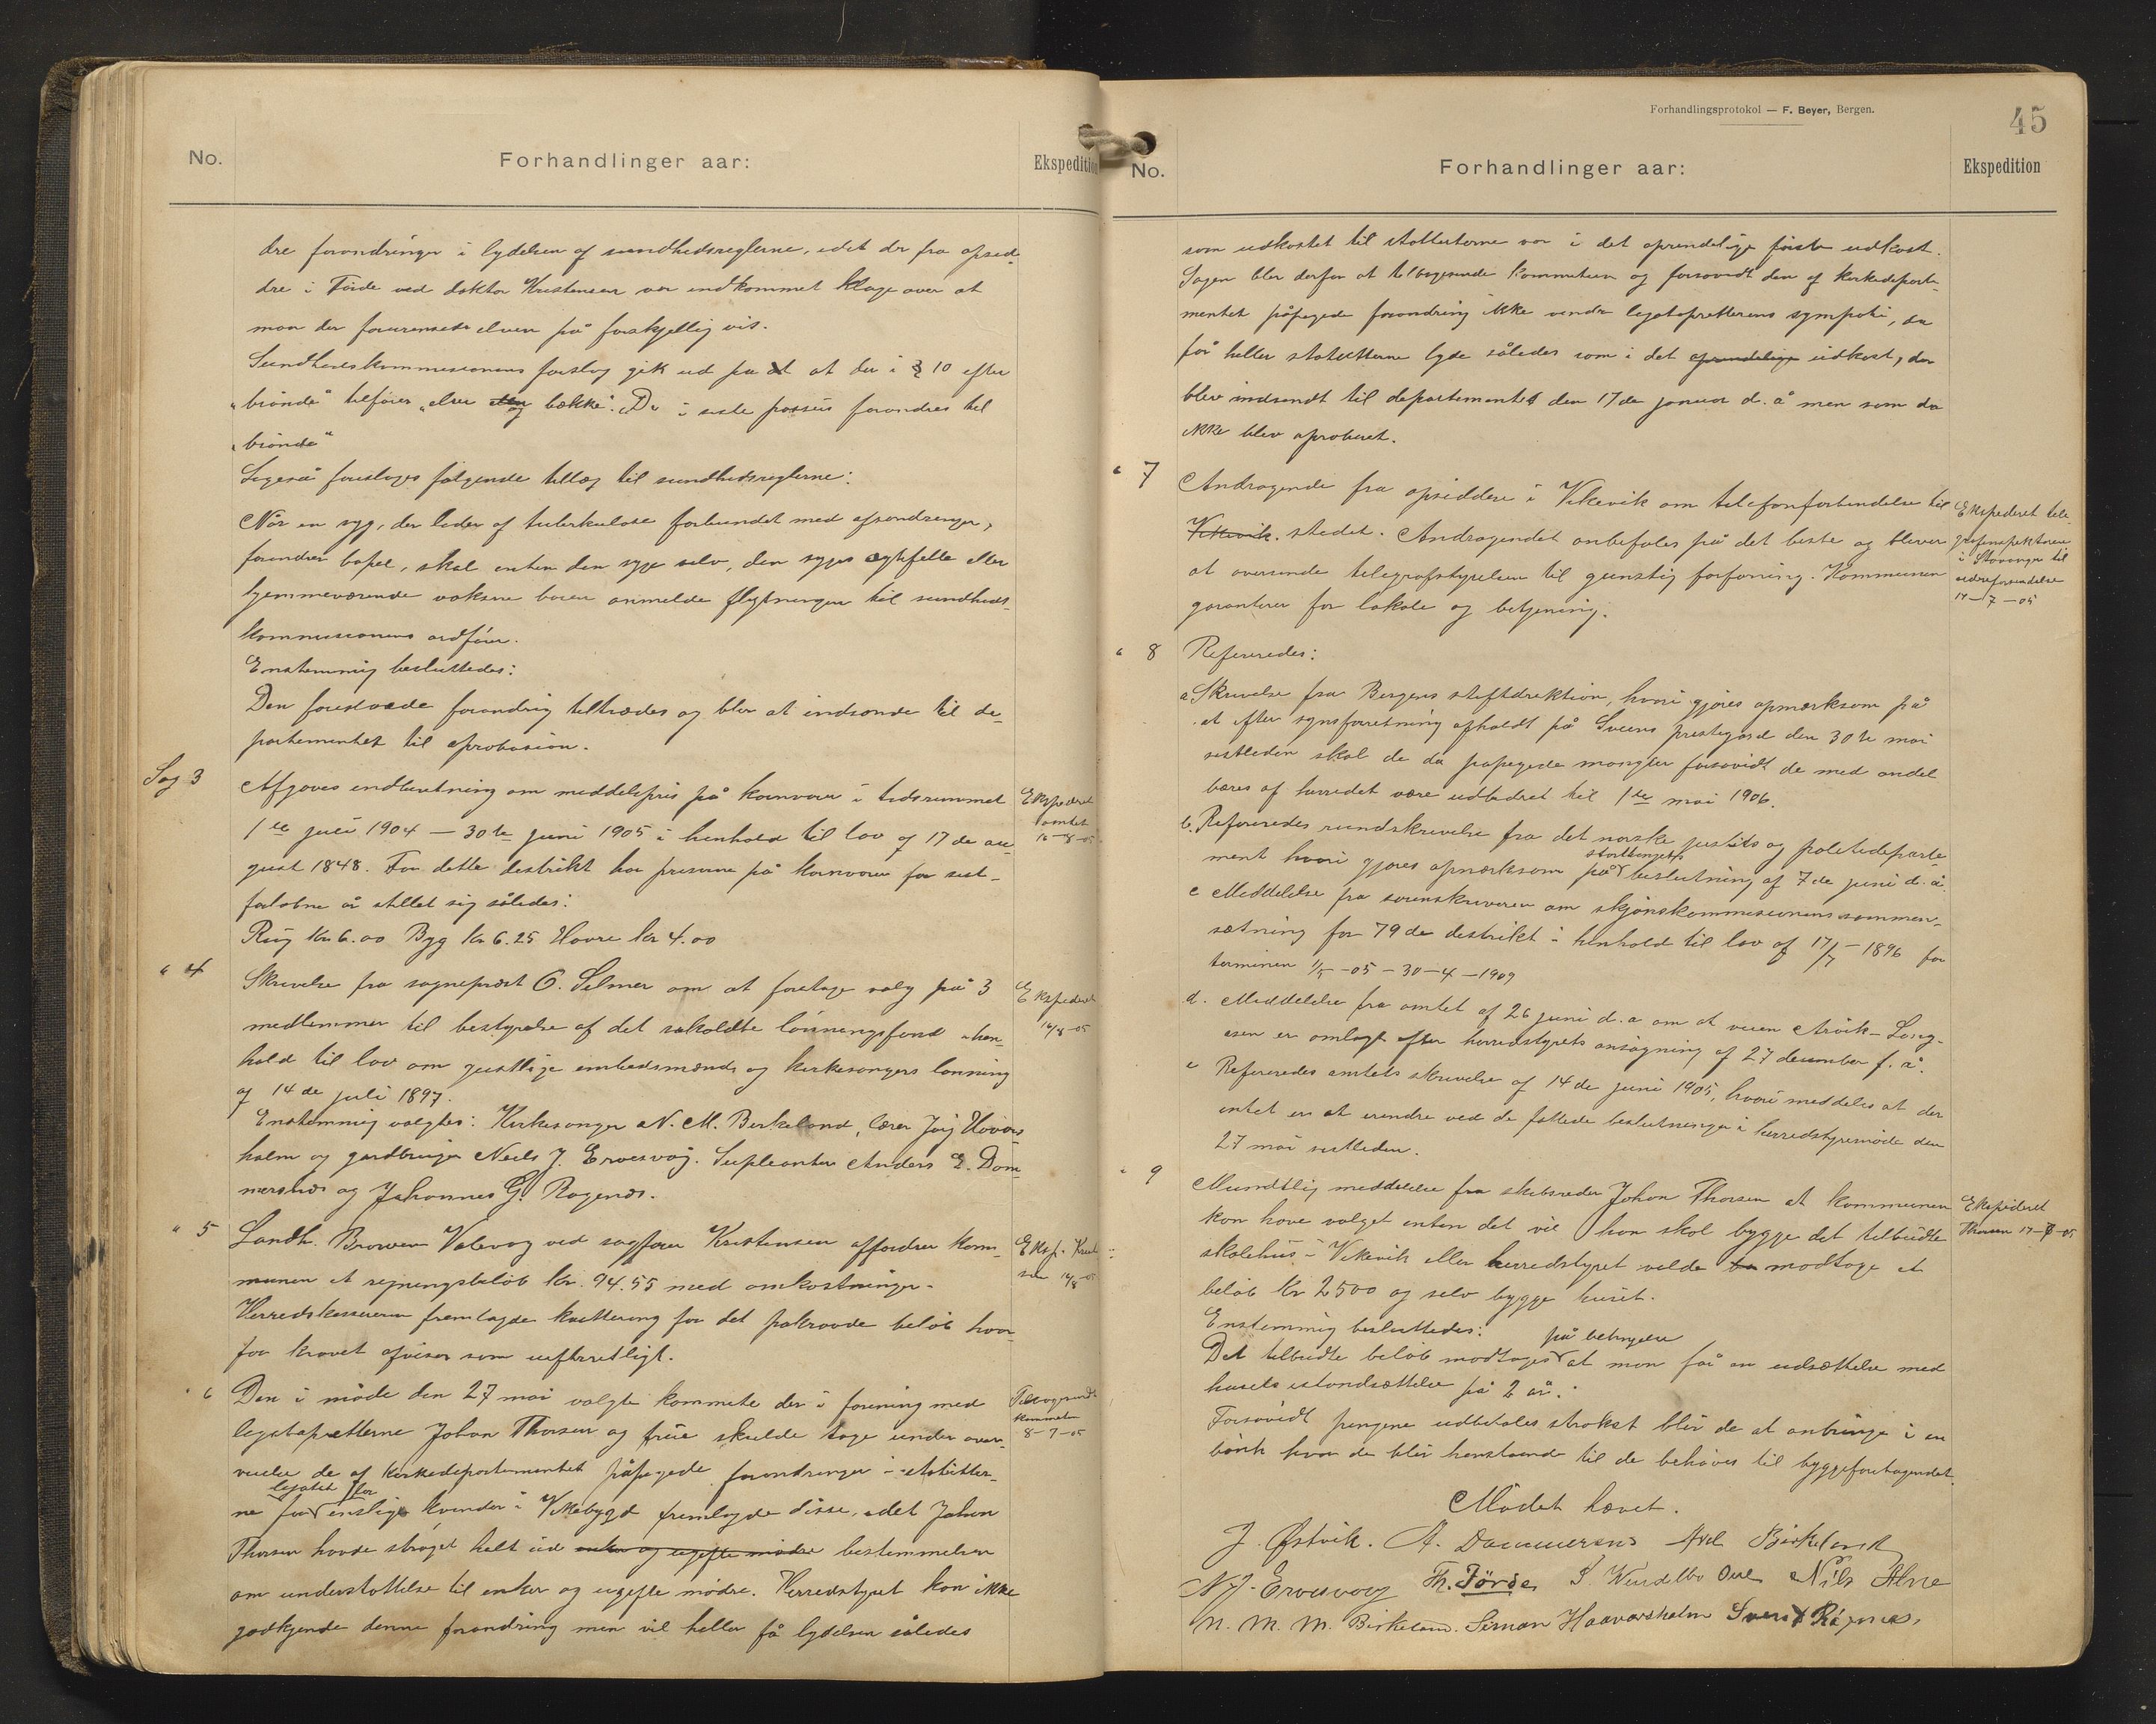 No.
Forhandlinger aar:
Ekspedition
dre forandringer i lydelsen af sundhedsreglerne, idet der fra opsid-
dre i Förde ved doktor Kristensen var indkommet klage over at
man der forurenset elven på forskjellig vis.
Sundhedskommissionens forslag gik ud på at at der i § 10 efter
"brönde" tilföies "elver eller og bække". De i siste passus forandres til
"brönde"
Ligeså foreslages fölgende tillæg til sundhedsreglerne:
Når en syg, der lider af tuberkulose forbundet med afsondringer,
forandrer bopæl, skal enten den syge selv, den syges ægtefelle eller
hjemmeværende voksne börn anmelde flytningen til sundheds-
kommissionens ordförer.
Enstemmig besluttedes:
Den foreslåede forandring tiltrædes og blir at indsende til de-
partementet til aprobasion.
Sag 3
Afgaves indberetning om middelspris på kornvarer i tidsrummet
1ste juli 1904 — 30te juni 1905 i henhold til lov af 17de au-
gust 1848. For dette distrikt har priserne på kornvarer for sist-
forlöbne år stillet sig således:
Rug Kr 6.00 Byg Kr 6.25 Havre Kr 4.00
Ekspederet
amtet
16-8-05
" 4
Skrivelse fra sogneprest O. Selmer om at foretage valg på 3
medlemmer til bestyrelse af det såkaldte lönningsfond i hen-
hold til lov om geistlige embedsmænds og kirkesangers lönning
af 14de juli 1897.
Enstemmig valgtes: Kirkesanger N. M. Birkeland, lærer Jörg Hovars-
holm og gardbruger Neels J. Ervesvåg. Supleanter Anders E. Dom-
mersnæs og Johannes G. Ragenæs.
Ekspederet
16/8-05
" 5
Landh. Browen Valevag ved sagförer Kristensen affordrer kom-
munen et regningsbelöb kr. 94.55 med omkostninger.
Herredskassereren fremlagde kvittering for det påkrævde belöb hvor-
for kravet afvises som uefterretligt.
Eksp. Kristen-
sen 16/8-05
" 6
Den i möde den 27 mai valgte kommite der i forening med
legatopretterne Johan Thorsen og frue skulde tage under over-
veielse de af kirkedepartementet påpegede forandringer i statutter-
legatet for
ne for enslige kvinder i Vikebygd fremlagde disse, idet Johan
Thorsen havde ströget helt ud enker og ugifte mödre bestemmelsen
om understöttelse til enker og ugifte mödre. Herredstyret kan ikke
godkjende denne forandring men vil heller få lydelsen således
Tilbagesendt
kommiteen
8-7-05
Forhandlingsprotokol — F. Beyer, Bergen.
45
No.
Forhandlinger aar:
Ekspedition
som udkastet til statutterne var i det oprindelige förste udkast.
Sagen blir derfor at tilbagesende kommiteen og forsåvidt den af kirkedeparte-
mentet påpegede forandring ikke vinder legatopretterens sympati, da
får heller statutterne lyde således som i det oprindelige udkast, der
blev indsendt til departementet den 17de januar d. å men som da
ikke blev aproberet.
" 7
Andragende fra opsiddere i Vikevik om telefonforbindelse til
Vikevik. stedet. Andragendet anbefales på det beste og bliver
at oversende telegrafstyrelsen til gunstig forföining. Kommunen
garanterer for lokale og betjening.
Ekspederet tele-
grafinspektören
i Stavanger til
videreforsendelse
14-7-05
" 8
Refereredes:
a. Skrivelse fra Bergens stiftdirektion, hvori gjöres opmærksom på
at efter synsforretning afholdt på Sveens prestegård den 30te mai
sistleden skal de da påpegede mangler forsåvidt de med andel
bæres af herredet være udbedret til 1ste mai 1906.
b. Refereredes rundskrivelse fra det norske justits og politideparte-
ment hvori gjöres opmærksom på stortingets beslutning af 7de juni d. å.
c Meddelelse fra sorenskriveren om skjönskommissionens sammen-
sætning for 79de distrikt i henhold til lov af 17/7-1896 for
terminen 1/5-05-30-4-1909
d. Meddelelse fra amtet af 26 juni d. a om at veien Arvik-Lang-
åsen er omlagt efter herredstyrets ansögning af 27 december f. å.
e Refereredes amtets skrivelse af 14de juni 1905, hvori meddeles at der
intet er at erindre ved de fattede beslutninger i herredstyremöde den
27 mai sistleden.
" 9
Mundtlig meddelelse fra skibsreder Johan Thorsen at kommunen
kan have valget enten det vil han skal bygge det tilbudte
skolehus i Vikevik eller herredstyret vilde modtage et
belöb Kr 2500 og selv bygge huset.
Enstemmig besluttedes:
på betingelse
Det tilbudte belöb modtages at man får en udsættelse med
husets istandsættelse på 2 år.
Forsåvidt pengene udbetales strakst blir de at anbringe i en
bank hvor de blir henstående til de behöves til byggeforetagendet.
Ekspederet
Thorsen 17-8-05
Mödet hævet.
J. Östvik. A. Dommersnes Axel Birkeland
N. J. Ervesvaag Th. Förde Nils Alne
N. M. M. Birkeland. Simon Haavarsholm Svend Rögnæs.